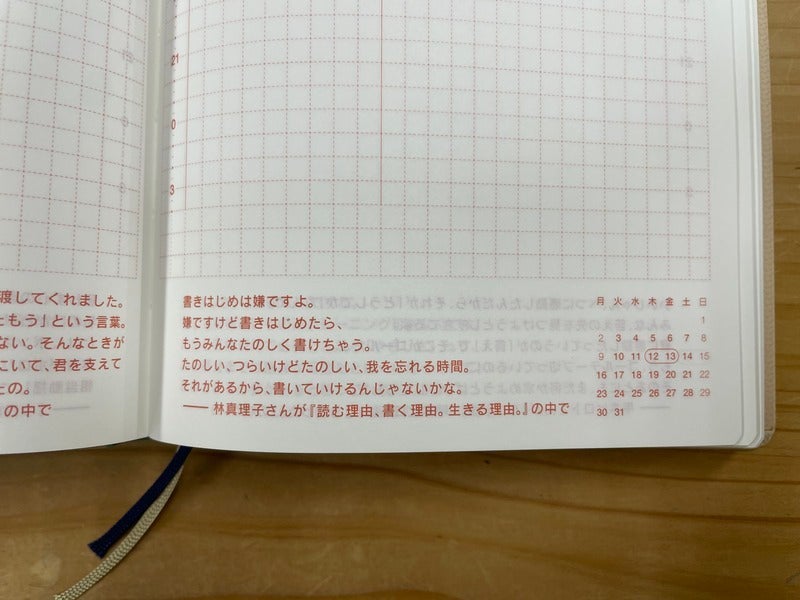 21
0
3
渡してくれました。
ともう」という言葉。
ない。そんなときが
こいて、君を支えて
の。
の中で
書きはじめは嫌ですよ。
嫌ですけど書きはじめたら、
もうみんなたのしく書けちゃう。
たのしい、つらいけどたのしい、我を忘れる時間。
それがあるから、書いていけるんじゃないかな。
—— 林真理子さんが『読む理由、書く理由。生きる理由。』の中で
月 火 水 木 金 土 日
1
2 3 4 5 6 7 8
9 10 11 12 13 14 15
16 17 18 19 20 21 22
23 24 25 26 27 28 29
30 31